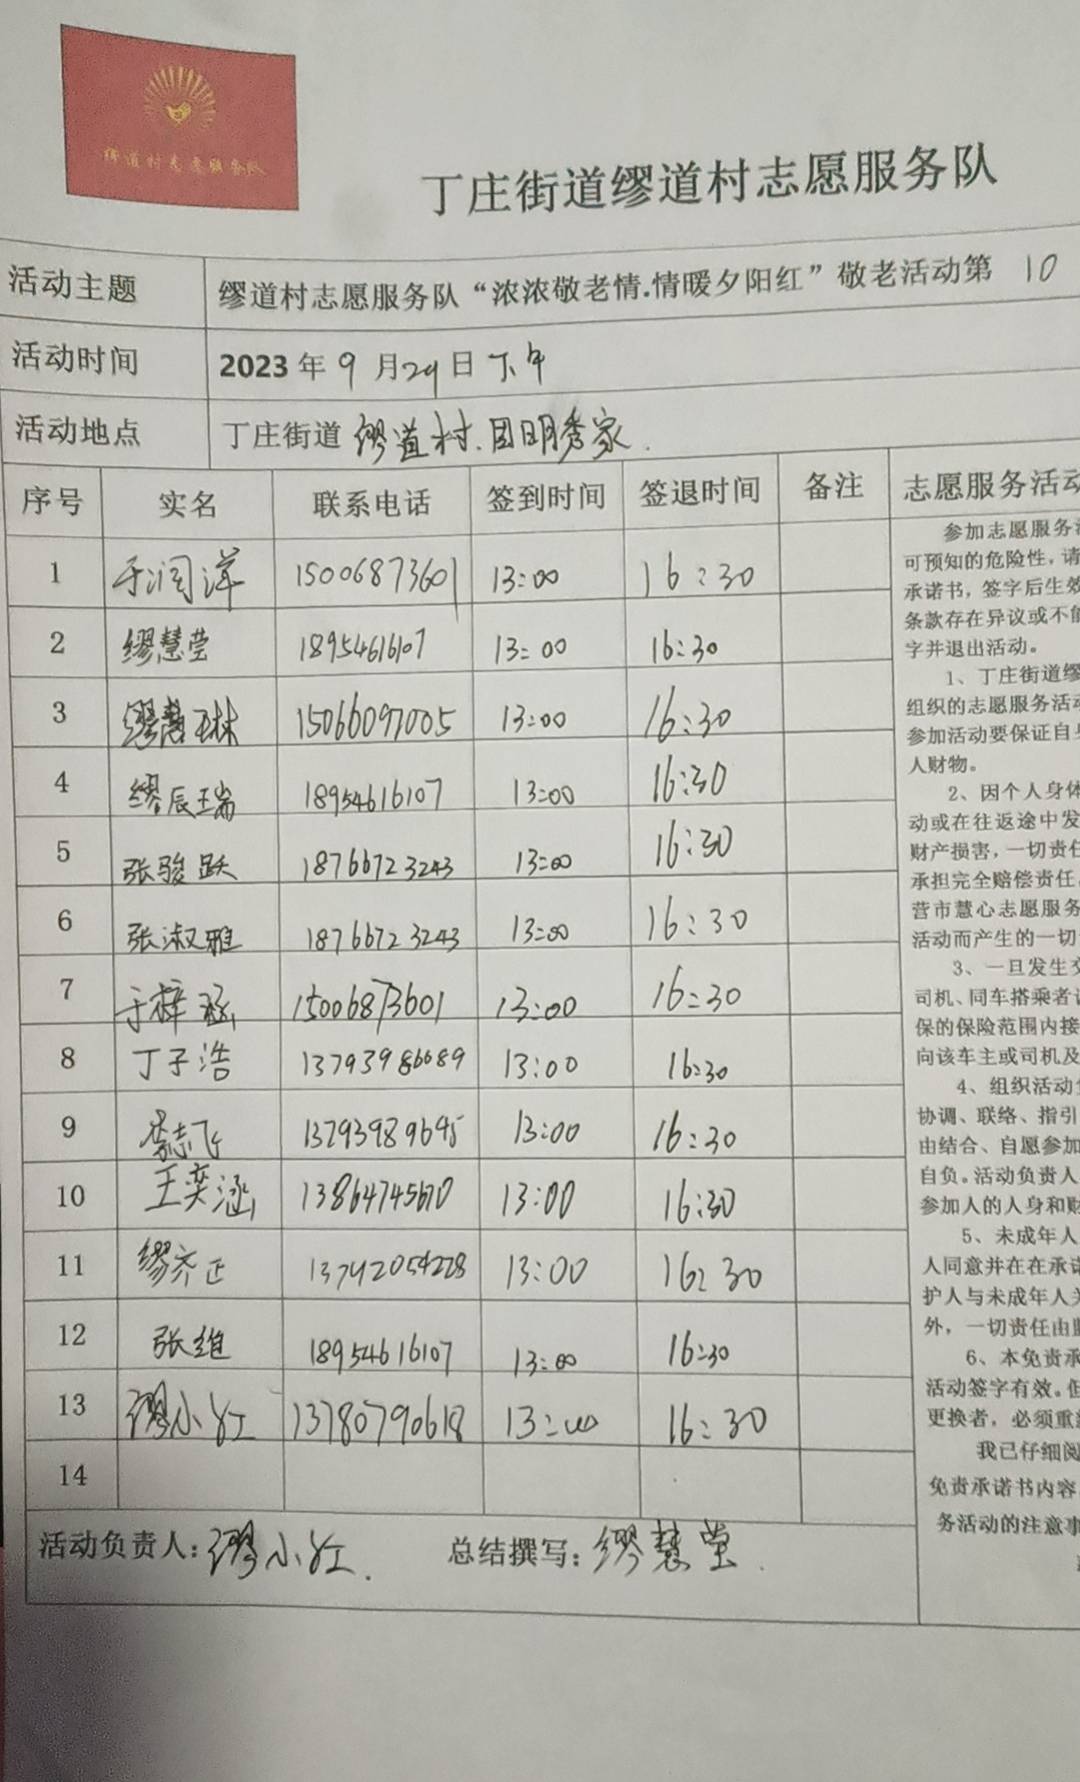 缪道村志愿服务队
丁庄街道缪道村志愿服务队
活动主题 缪道村志愿服务队“浓浓敬老情.情暖夕阳红”敬老活动第 10
活动时间 2023年9月29日下午
活动地点 丁庄街道 缪道村.田明秀家.
序号 实名 联系电话 签到时间 签退时间 备注
1 于润洋 15006873601 13:00 16:30
2 缪慧莹 18954616107 13:00 16:30
3 缪慧琳 15066097005 13:00 16:30
4 缪辰瑞 18954616107 13:00 16:30
5 张骏跃 18766723243 13:00 16:30
6 张淑雅 18766723243 13:00 16:30
7 于梓涵 15006873601 13:00 16:30
8 丁子浩 13793986689 13:00 16:30
9 志飞 13:00 16:30
10 王奕涵 13864745670 13:00 16:30
11 缪齐正 13:00 16:30
12 张维 18954616107 13:00 16:30
13 缪小红 13780790618 13:00 16:30
14
活动负责人:缪小红. 总结撰写:缪慧莹.
志愿服务活动
参加志愿服务
可预知的危险性,请
承诺书,签字后生效
条款存在异议或不能
字并退出活动。
1、丁庄街道缪
组织的志愿服务活动
参加活动要保证自身
人财物。
2、因个人身体
动或在往返途中发
财产损害,一切责任
承担完全赔偿责任
营市慧心志愿服务
活动而产生的一切
3、一旦发生交
司机、同车搭乘者
保的保险范围内接
向该车主或司机及
4、组织活动
协调、联络、指引
由结合、自愿参加
自负。活动负责人
参加人的人身和财
5、未成年人
人同意并在在承诺
护人与未成年人关
外,一切责任由监
6、本免责承
活动签字有效。但
更换者,必须重新
我已仔细阅
免责承诺书内容
务活动的注意事